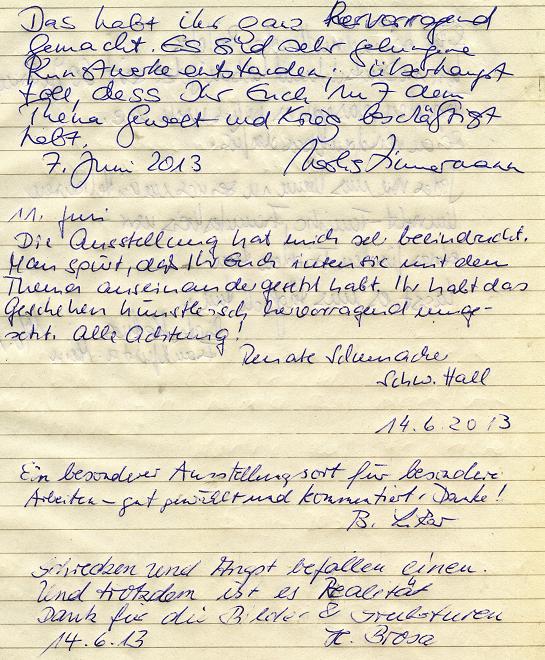 Das habt ihr ganz hervorragend
gemacht. Es sind sehr gelungene
Kunstwerke entstanden. Überhaupt
toll, dass Ihr Euch mit dem
Thema Gewalt und Krieg beschäftigt
habt.
7. Juni 2013 Zimmermann
11. Juni
Die Ausstellung hat mich sehr beeindruckt.
Man spürt, daß Ihr Euch intensiv mit dem
Thema auseinandergesetzt habt. Ihr habt das
Geschehen künstlerisch hervorragend umge-
setzt. Alle Achtung!
Renate Schumacher
Schw. Hall
14.6.2013
Ein besonderer Ausstellungsort für besondere
Arbeiten – gut gewählt und kommentiert. Danke!
B.
Schrecken und Angst befallen einen.
Und trotzdem ist es Realität
Dank für die Bilder & Skulpturen
14.6.13 H. Brosa